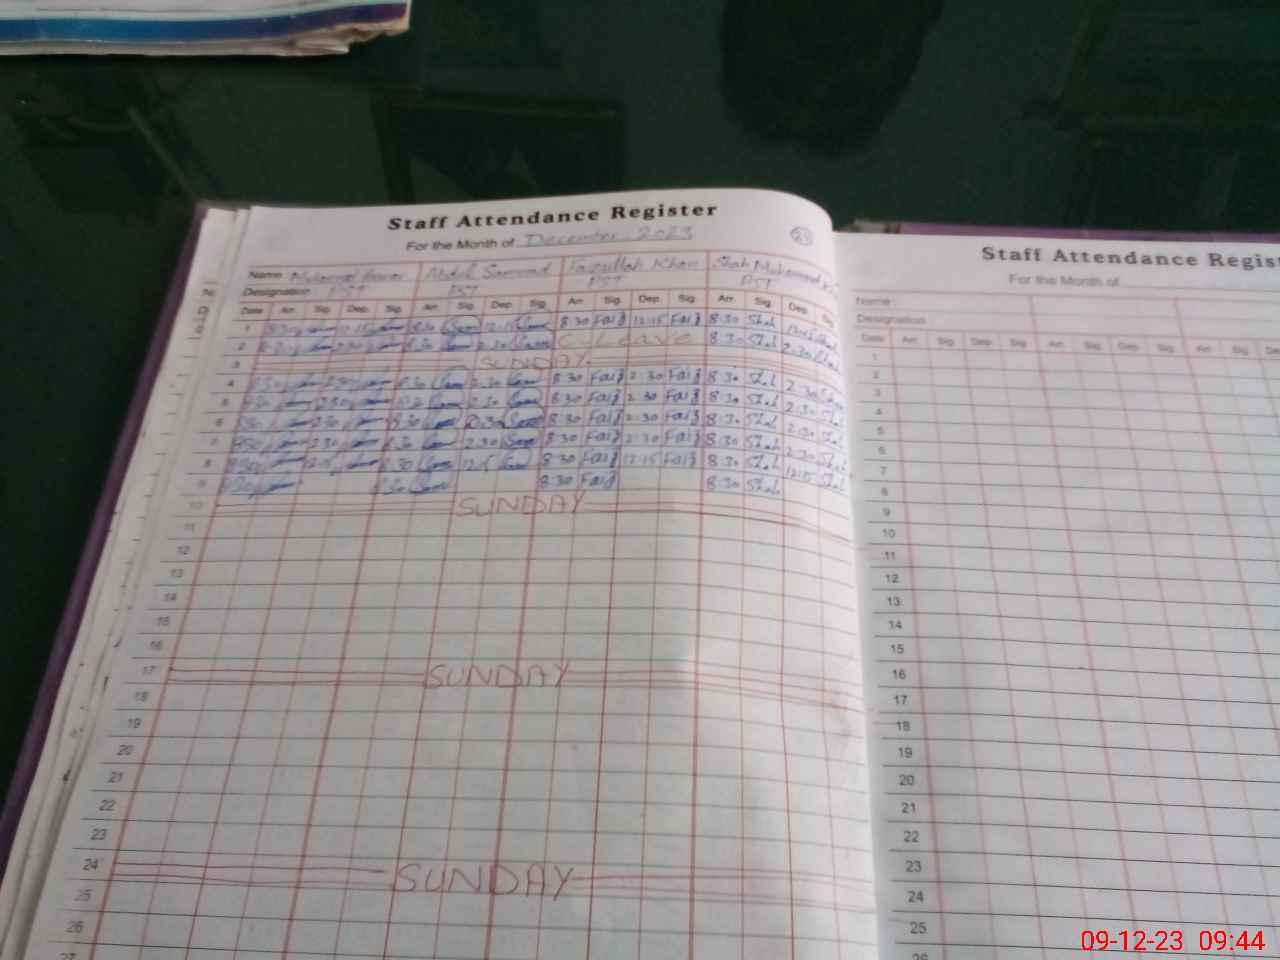 Staff Attendance Register
For the Month of December 2023
24
Name Abdul Sammad Faizullah Khan Shah Muhammad
Designation PST PST PST PST
Date Arr. Sig. Dep. Sig. Arr. Sig. Dep. Sig. Arr. Sig. Dep. Sig. Arr. Sig. Dep. Sig
1 8:30 12:15 8:30 12:15 8:30 Faiz 12:15 Faiz 8:30 Shah
2 8:30 2:30 8:30 2:30 C-Leave 8:30 Shah 2:30 Shah
3 SUNDAY
4 8:30 2:30 8:30 2:30 8:30 Faiz 2:30 Faiz 8:30 Shah 2:30 Shah
5 8:30 2:30 8:30 2:30 8:30 Faiz 2:30 Faiz 8:30 Shah 2:30 Shah
6 8:30 2:30 8:30 2:30 8:30 Faiz 2:30 Faiz 8:30 Shah 2:30 Shah
7 8:30 2:30 8:30 2:30 8:30 Faiz 2:30 Faiz 8:30 Shah 2:30 Shah
8 8:30 12:15 8:30 12:15 8:30 Faiz 12:15 Faiz 8:30 Shah 12:15 Shah
9 8:30 8:30 8:30 Faiz 8:30 Shah
10 SUNDAY
11
12
13
14
15
16
17 SUNDAY
18
19
20
21
22
23
24 SUNDAY
25
26
27
Staff Attendance Regist
For the Month of
Name
Designation
Date Arr. Sig. Dep. Sig. Arr. Sig. Dep. Sig. De
1
2
3
4
5
6
7
8
9
10
11
12
13
14
15
16
17
18
19
20
21
22
23
24
25
26
09-12-23 09:44